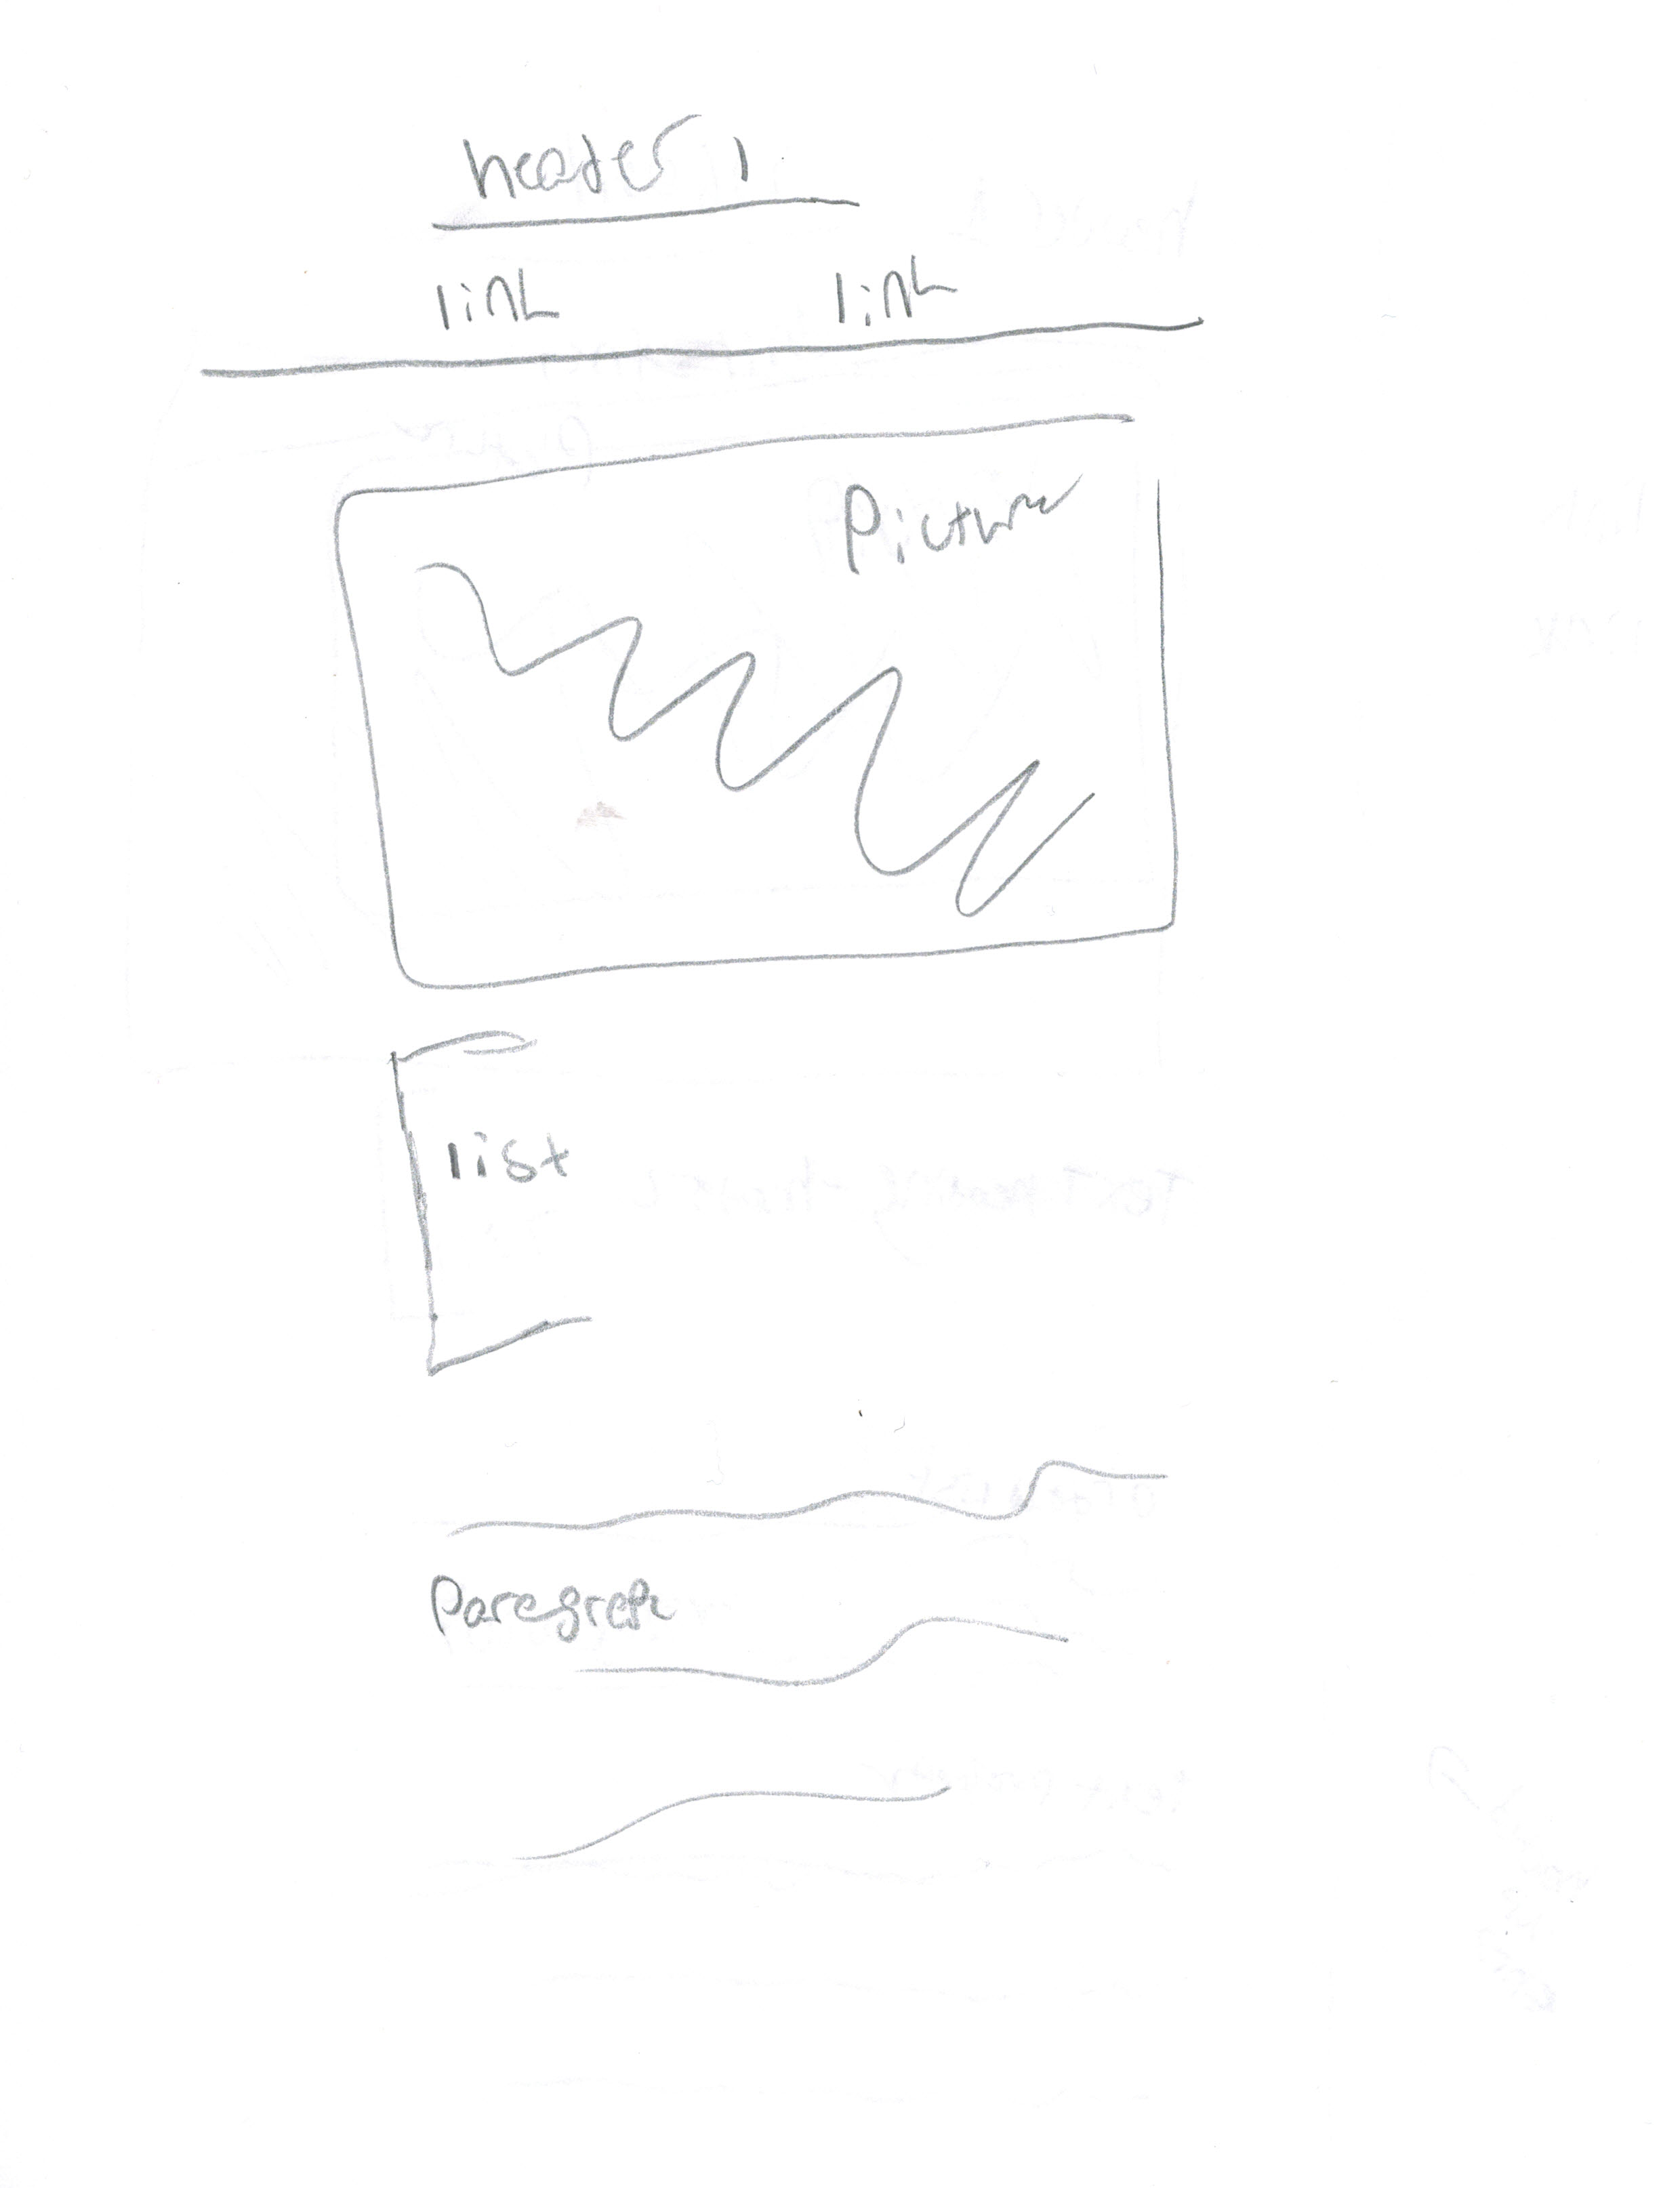 header 1
link link
Picture
list
Paregreph